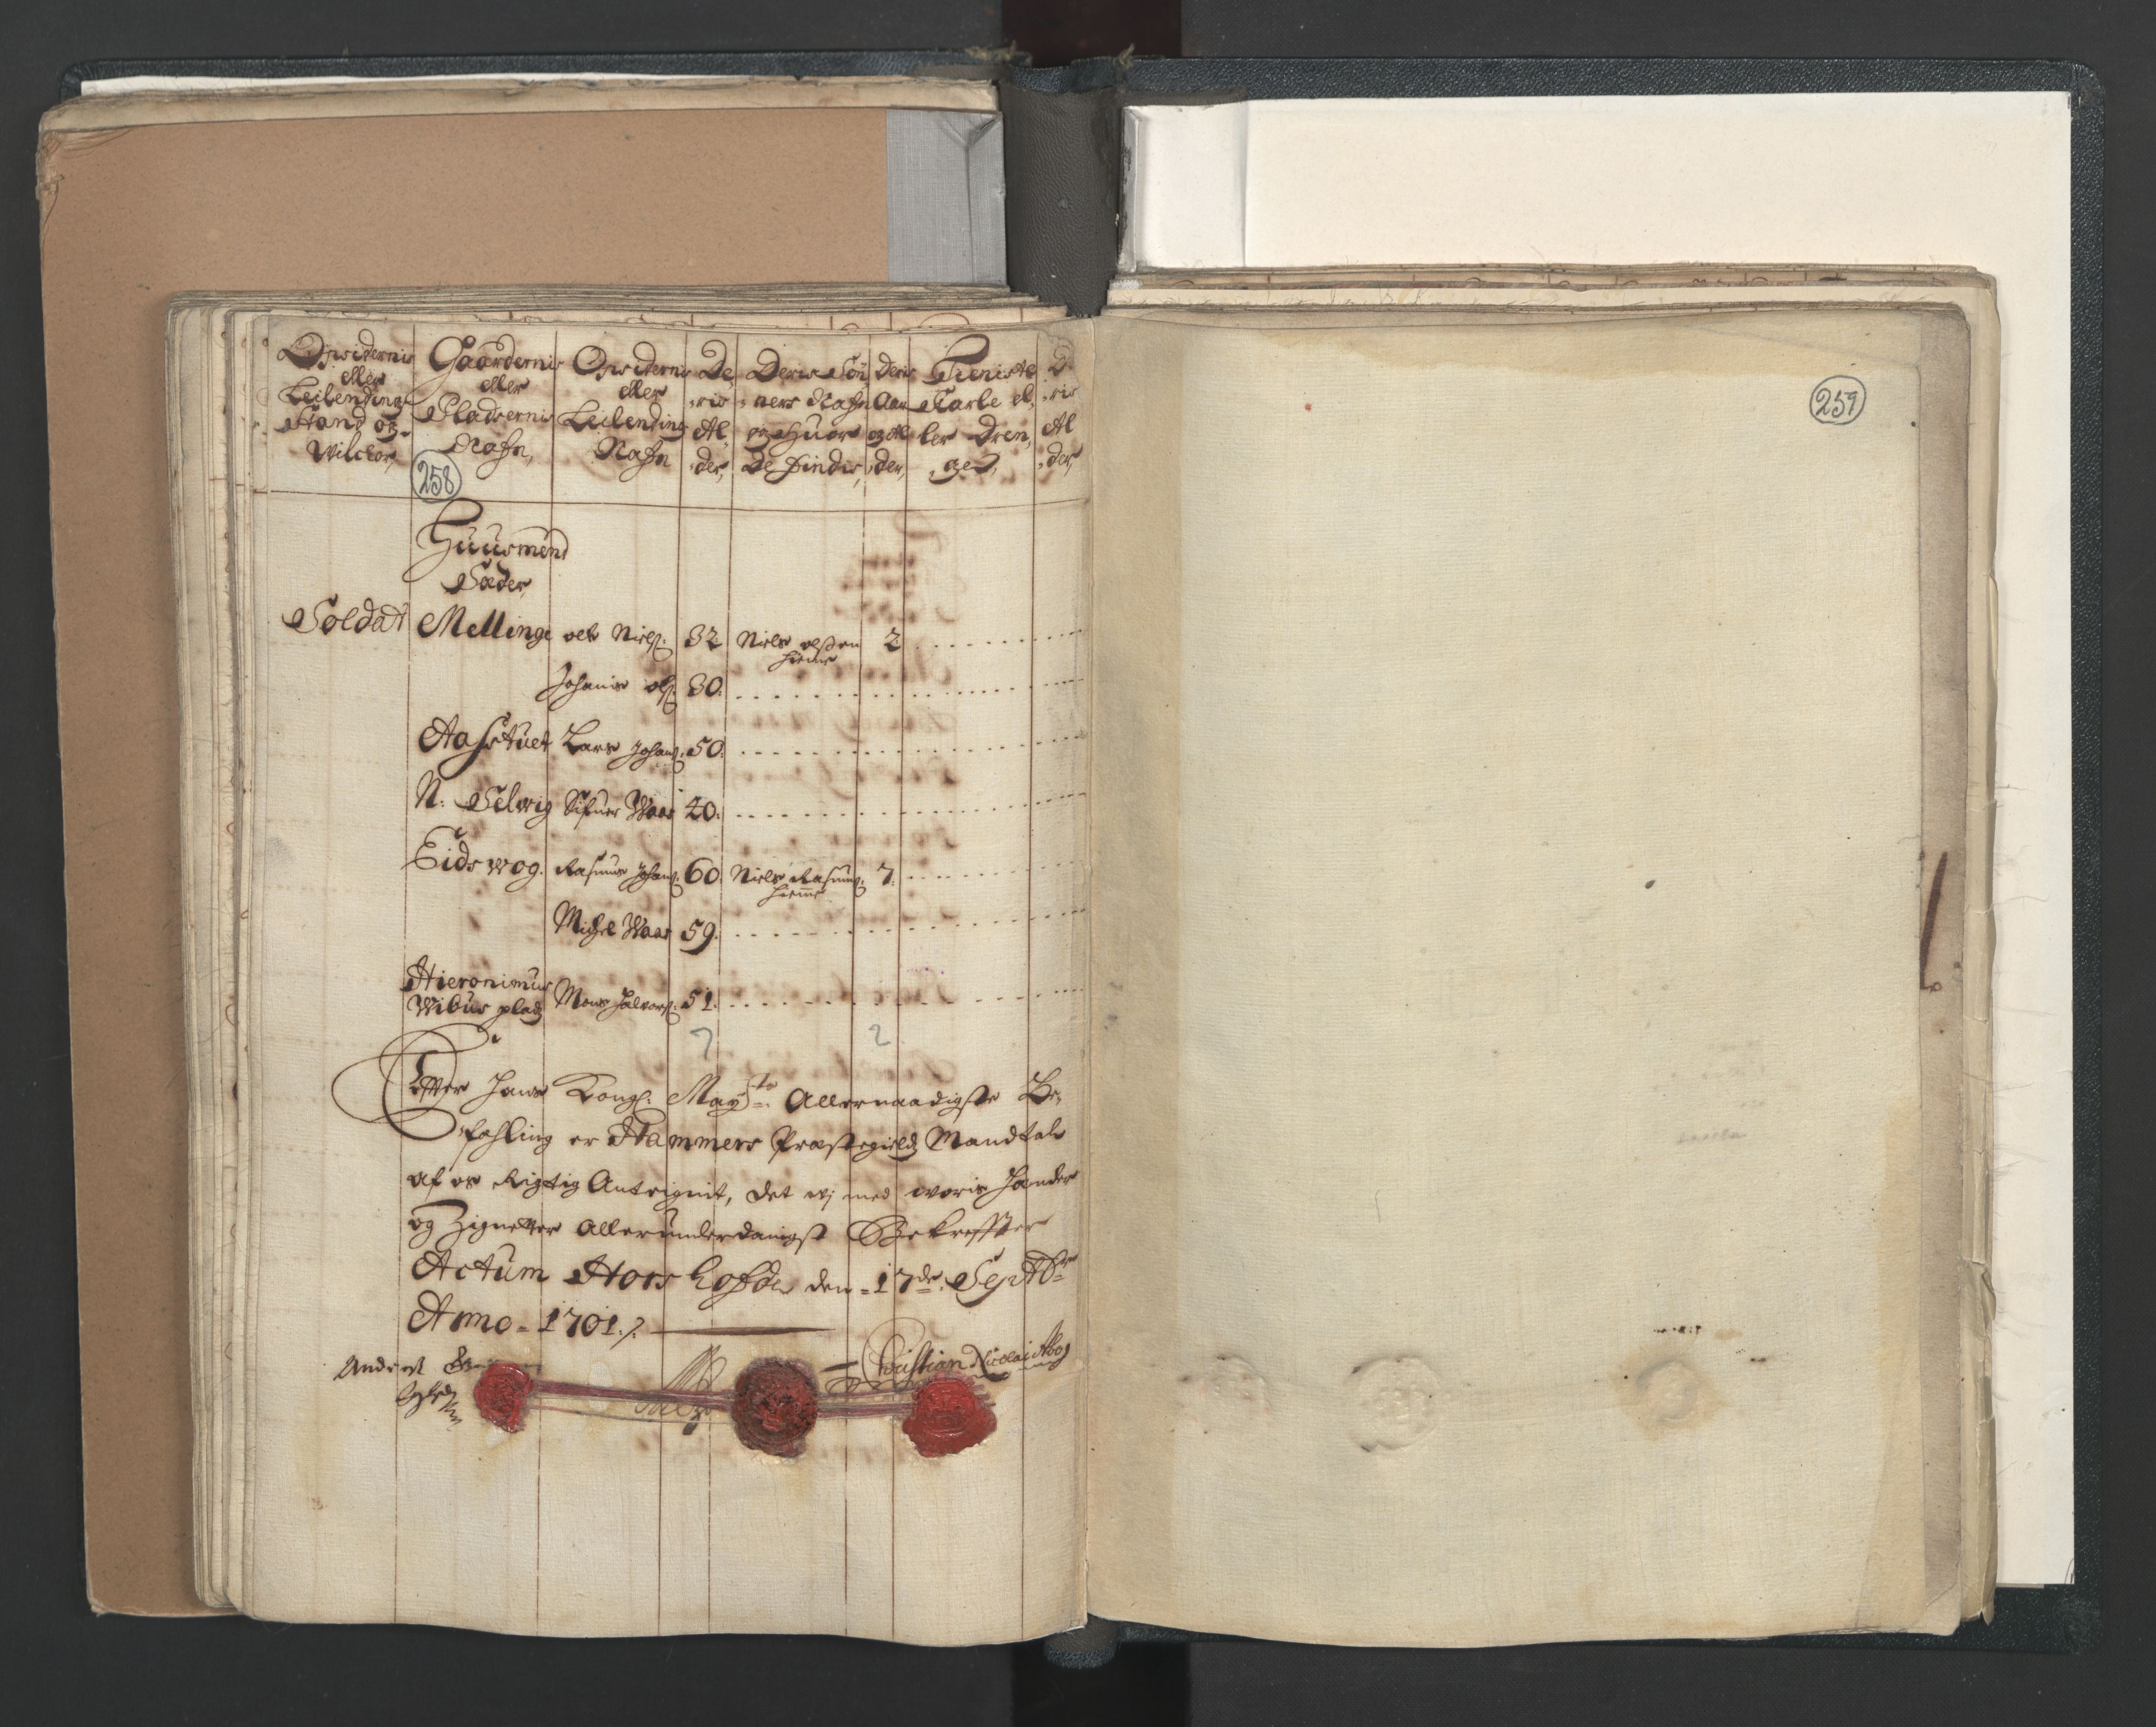 Opsidernis eller Leilendings Stand og Wilckor,
Gaardernis eller Pladsernis Nafn,
Opsidernis eller Leilendings Nafn
De-ris Al-der,
Deris Sønners Nafn og Huor De Findis,
Deris Aar og Al-der,
Tieniste Karle eller Drenge,
De-ris Al-der,
258
Huusmend
Sæder,
Soldat Mellinge ole Niels: 32. Niels olssen hieme 2
Johanis ols: 30.
Aastuet Lars Johans: 50.
N: Selwig Sifuer Waar 40.
Eidswog. Rasmus Johans: 60. Niels Rasmus: hieme 7.
Michel Waar 59.
Hieronimus
Wibus plads Mons Halvors: 51.
7 2
Efter Hans Kongl: Mayts: Allernaadigste Be-
fahling er Hammers Præstegields Mandtal
af os Rigtig Antegnit, det vj med voris Hænder
og Zignetter Allerunderdanigst Bekreffter
Actum Hors hofde den = 17de Septbr
Anno = 1701 ./.
Christian Nicolai Abog
259